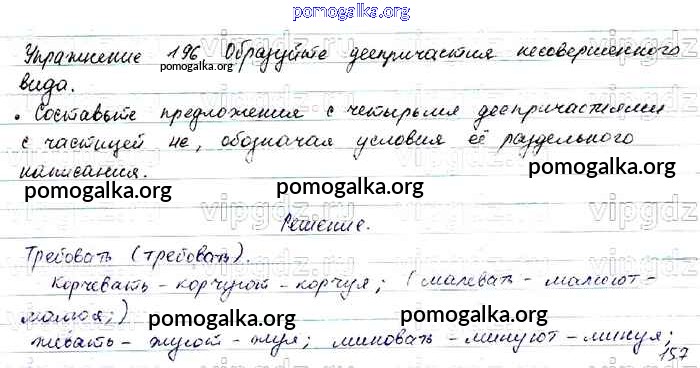 pomogalka.org
Упражнение 196 Образуйте деепричастия несовершенного
pomogalka.org
вида.
• Составьте предложения с четырьмя деепричастиями
с частицей не, обозначая условия её раздельного
написания.
pomogalka.org pomogalka.org
Решение.
Требовать (требовать).
Корчевать - корчуют - корчуя; (малевать - малюют -
малюя;)
pomogalka.org pomogalka.org
жевать - жуют - жуя; миновать - минуют - минуя;
157